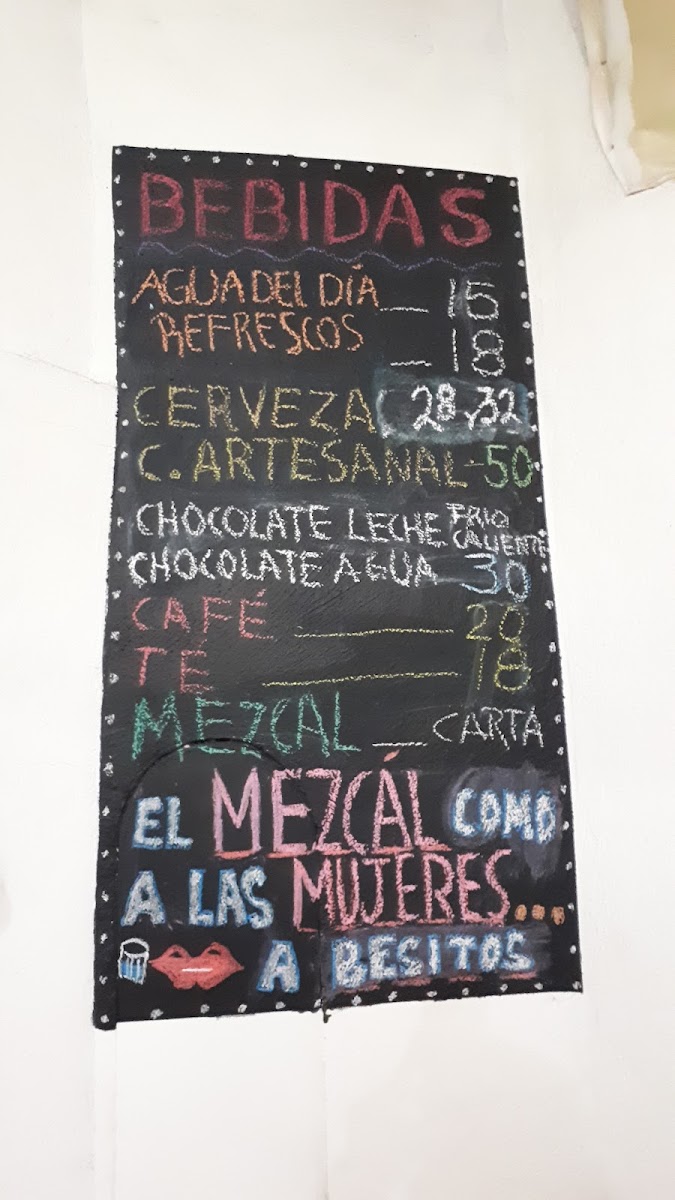 BEBIDAS
AGUA DEL DÍA — 15
REFRESCOS — 18
CERVEZA 28 y 32
C. ARTESANAL - 50
CHOCOLATE LECHE FRIO
CALIENTE
CHOCOLATE AGUA 30
CAFÉ — 20
TÉ — 18
MEZCAL — CARTA
EL MEZCÁL COMO
A LAS MUJERES...
A BESITOS